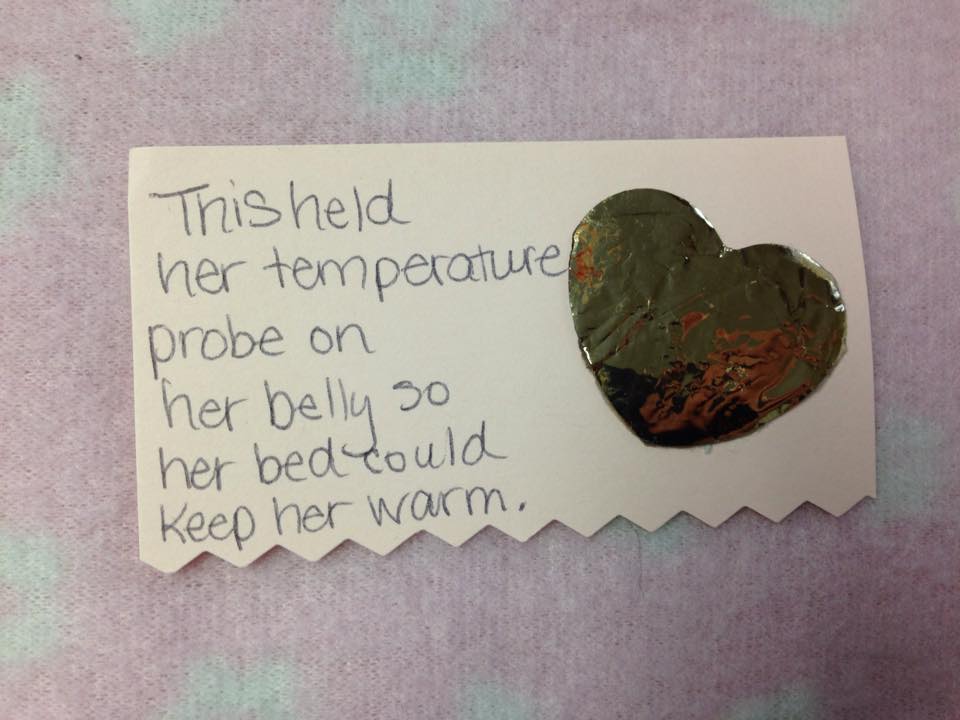 This held
her temperature
probe on
her belly so
her bed could
keep her warm.